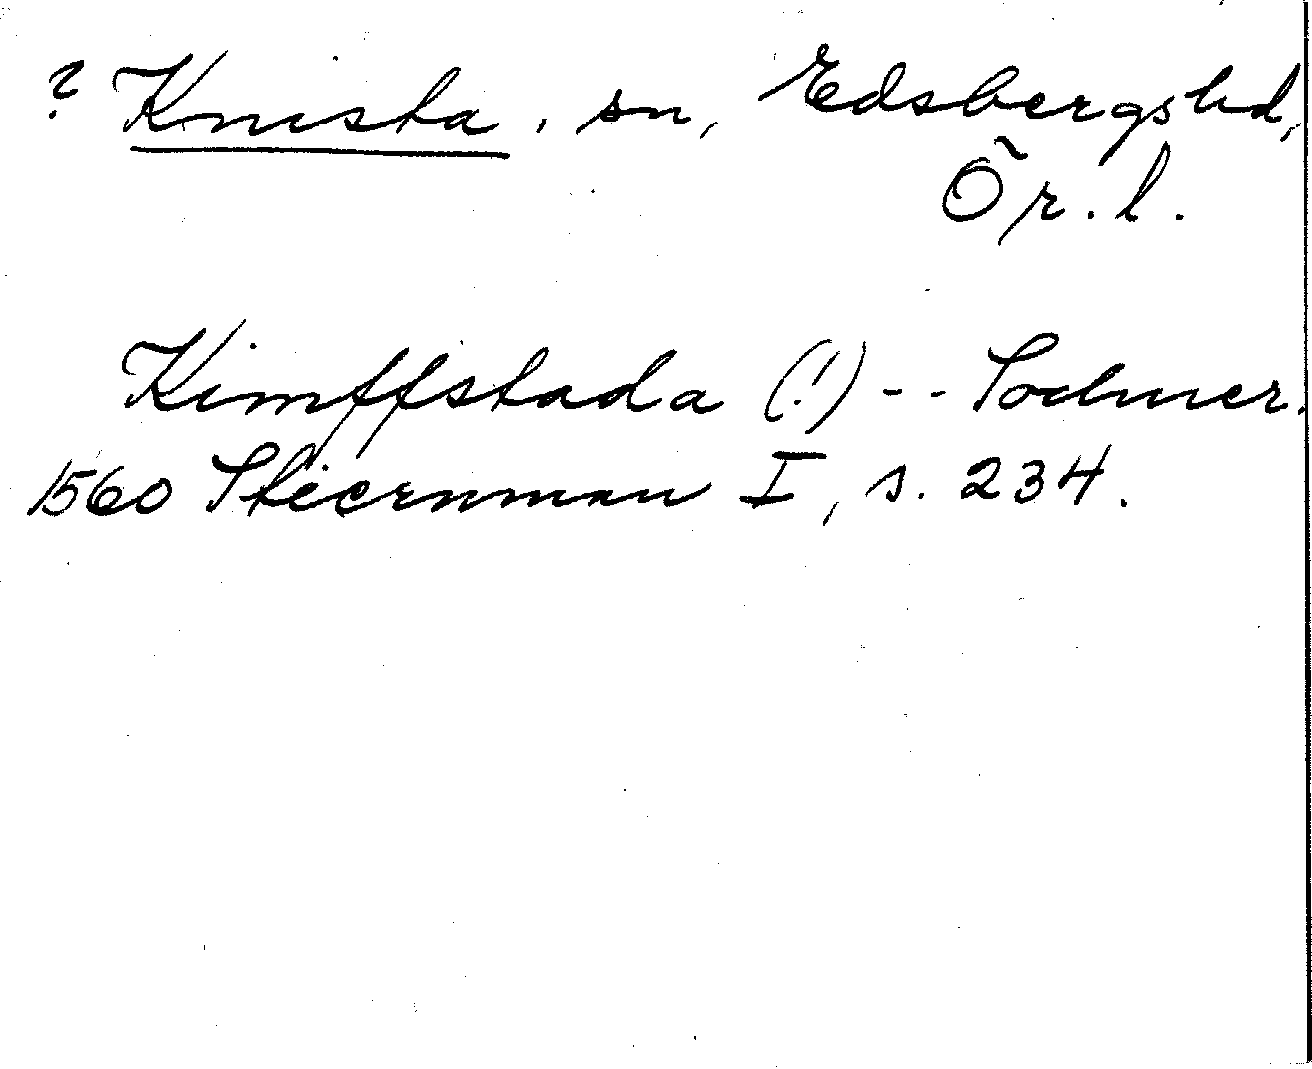 ? Knista, sn, Edsbergs hd,
Ör. l.
Kimffstada (!) -- Sochner.
1560 Stiernman I, s. 234.